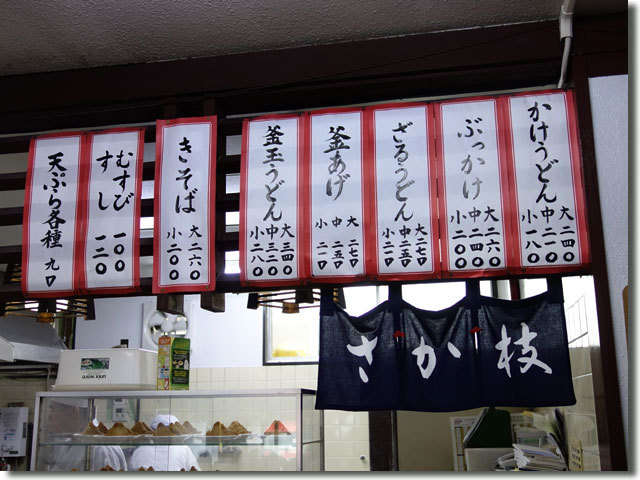 かけうどん
大二四〇
中二一〇
小一八〇
ぶっかけ
大二六〇
中二四〇
小二〇〇
ざるうどん
大二七〇
中二五〇
小二一〇
釜あげ
大二七〇
中二五〇
小二一〇
釜玉うどん
大三四〇
中三二〇
小二八〇
きそば
大二六〇
小二〇〇
むすび 一〇〇
すし 一三〇
天ぷら各種 九〇
さか枝